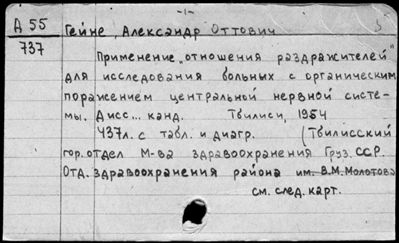 -1-
А 55 Гейне, Александр Оттович
737
Применение „отношения раздражителей"
для исследования больных с органическим
поражением центральной нервной систе-
мы. Дисс... канд. Тбилиси, 1954
437л. с табл. и диагр. (Тбилисский
гор. отдел М-ва здравоохранения Груз. ССР.
Отд. здравоохранения района им. В.М. Молотова
см. след. карт.